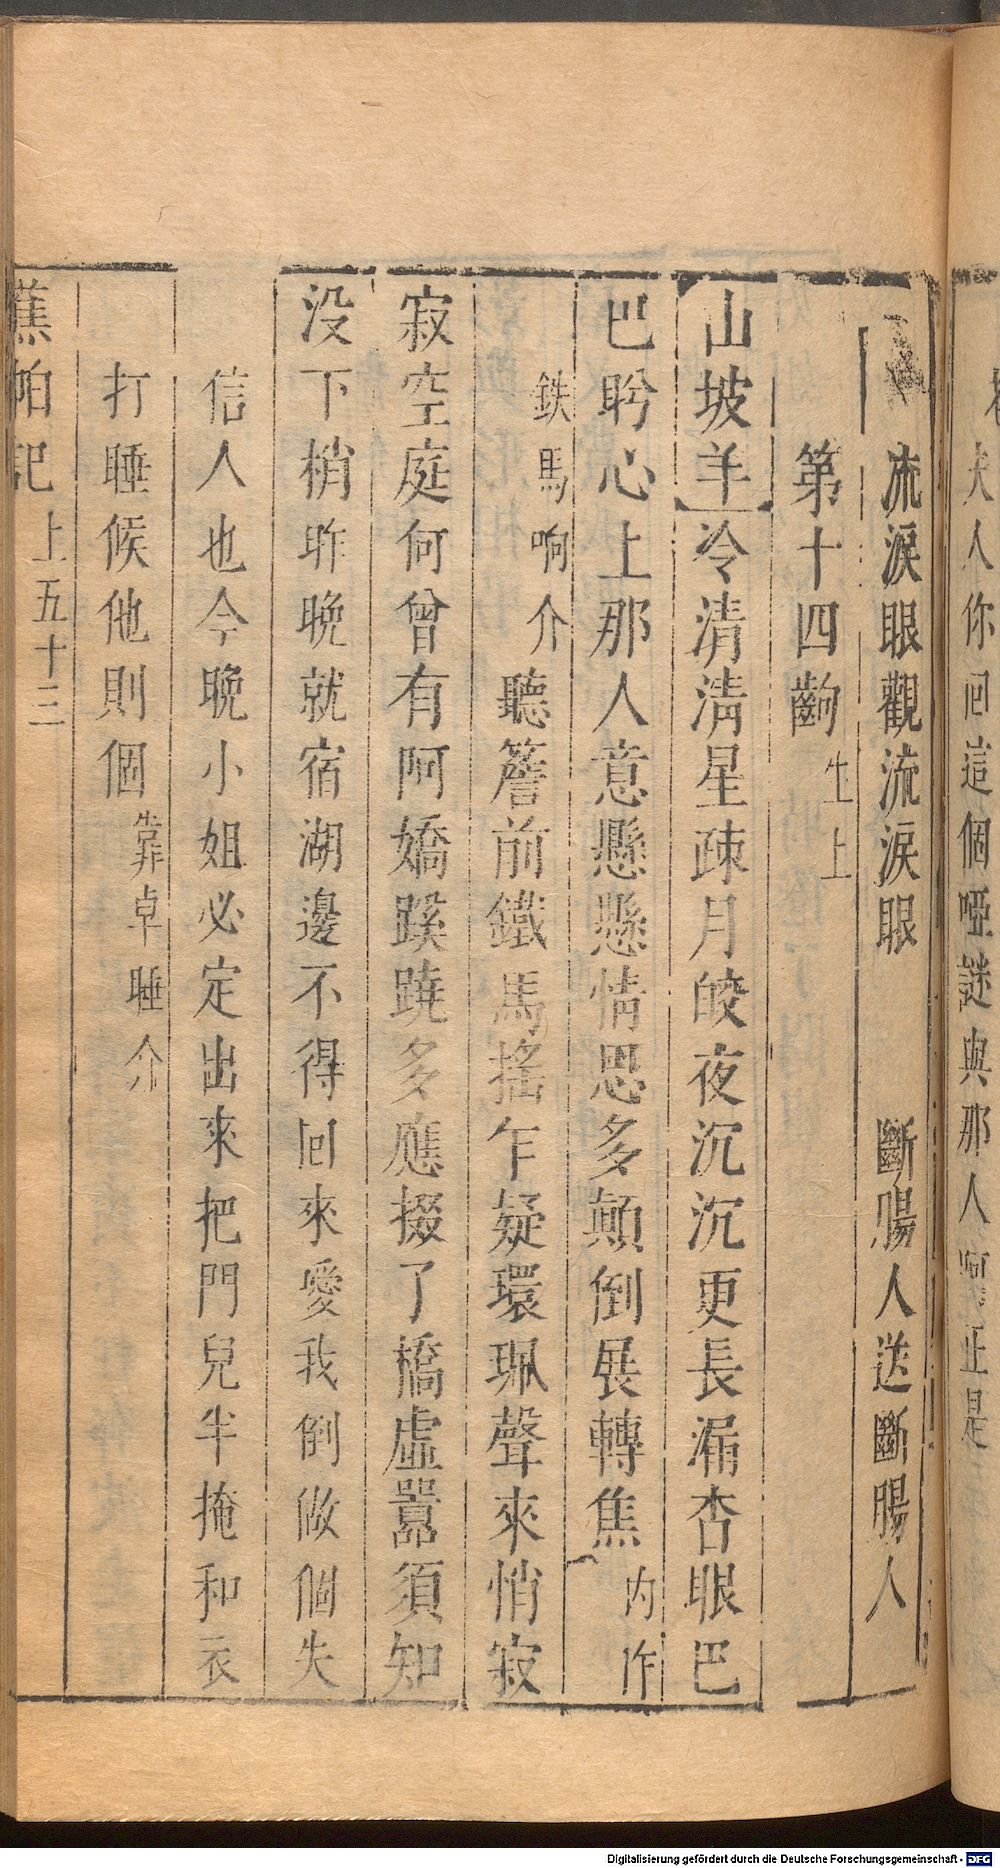 夫人你回這個啞謎與那人啊正是
流淚眼觀流淚眼　斷腸人送斷腸人
第十四齣 生上
山坡羊 冷清清星疎月皎夜沉沉更長漏杳眼巴
巴盻心上那人意懸懸情思多顛倒展轉焦 内作
鉄馬响介 聽簷前鐵馬搖乍疑環珮聲來悄寂
寂空庭何曾有阿嬌蹊蹺多應掇了橋虛囂須知
没下梢昨晚就宿湖邊不得回來愛我倒做個失
信人也今晚小姐必定出來把門兒半掩和衣
打睡候他則個 靠卓睡介
蕉帕記 上五十三
Digitalisierung gefördert durch die Deutsche Forschungsgemeinschaft - DFG